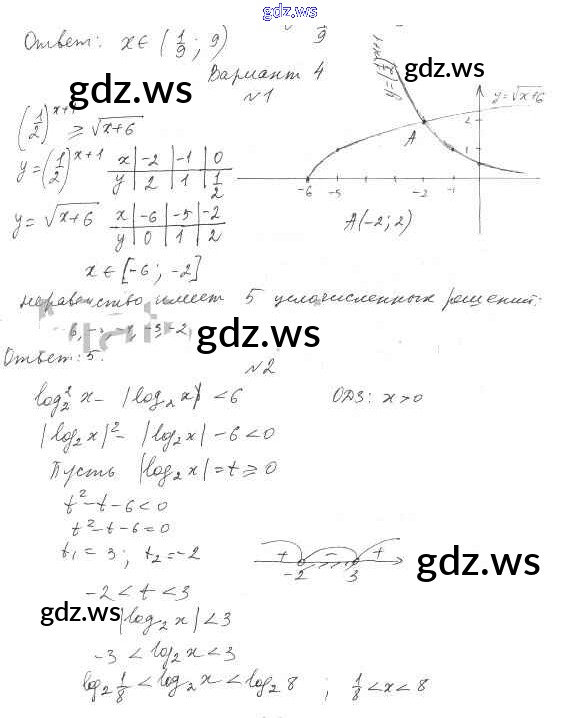 gdz.ws
Ответ: x∈(1/9; 9)
1/9
Вариант 4
gdz.ws
№1
(1/2)^(x+1) ≥ √(x+6)
y=(1/2)^(x+1)
x | -2 | -1 | 0
y | 2 | 1 | 1/2
y = √(x+6)
x | -6 | -5 | -2
y | 0 | 1 | 2
y=(1/2)^(x+1)
y=√(x+6)
2
1
A
-6 -5 -2 -1
A(-2; 2)
gdz.ws
x∈[-6; -2]
неравенство имеет 5 целочисленных решений:
gdz.ws
Ответ: 5.
№2
log₂²x - |log₂x| < 6
ОДЗ: x>0
|log₂x|² - |log₂x| - 6 < 0
Пусть |log₂x| = t ≥ 0
t² - t - 6 < 0
t² - t - 6 = 0
t₁ = 3; t₂ = -2
+ - +
-2 3
gdz.ws
-2 < t < 3
gdz.ws
|log₂x| < 3
-3 < log₂x < 3
log₂ 1/8 < log₂x < log₂8 ; 1/8 < x < 8